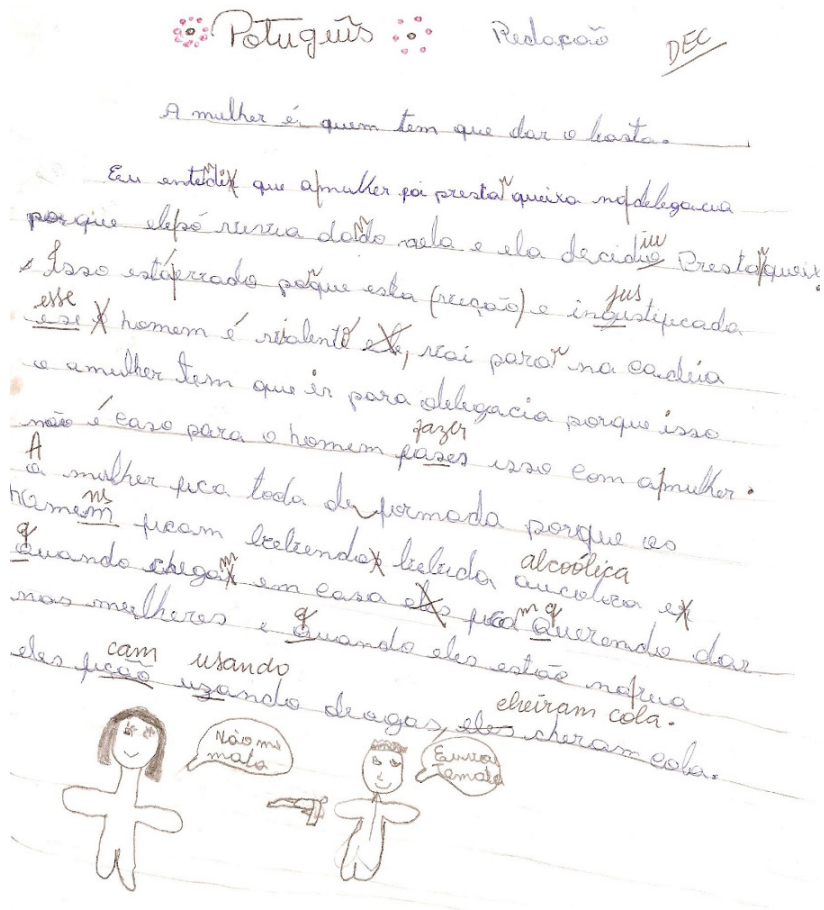 Potuguûs Redação DEC
A mulher é quem tem que dar o basta.
Eu entedi que a mulher foi presta queixa na delegacia
porque ele só vivia dando nela e ela decidiu Presta queix.
Isso está errado porque esta (reção) e ingustificada
jus
esse
ese homem é violento ele, vai para na cadeia
e a mulher tem que ir para delegacia porque isso
não é caso para o homem fases isso com a mulher.
fazer
A
a mulher fica toda deformada porque os
homem ficam bebendo bebida aucolica e
alcoólica
quando chega em casa eles fica querendo dar
nas mulheres e quando eles estão na rua
eles ficão uzando drogas, eles cheram cola.
cam usando cheiram cola.
Não me
mata
Eu vou
Temata